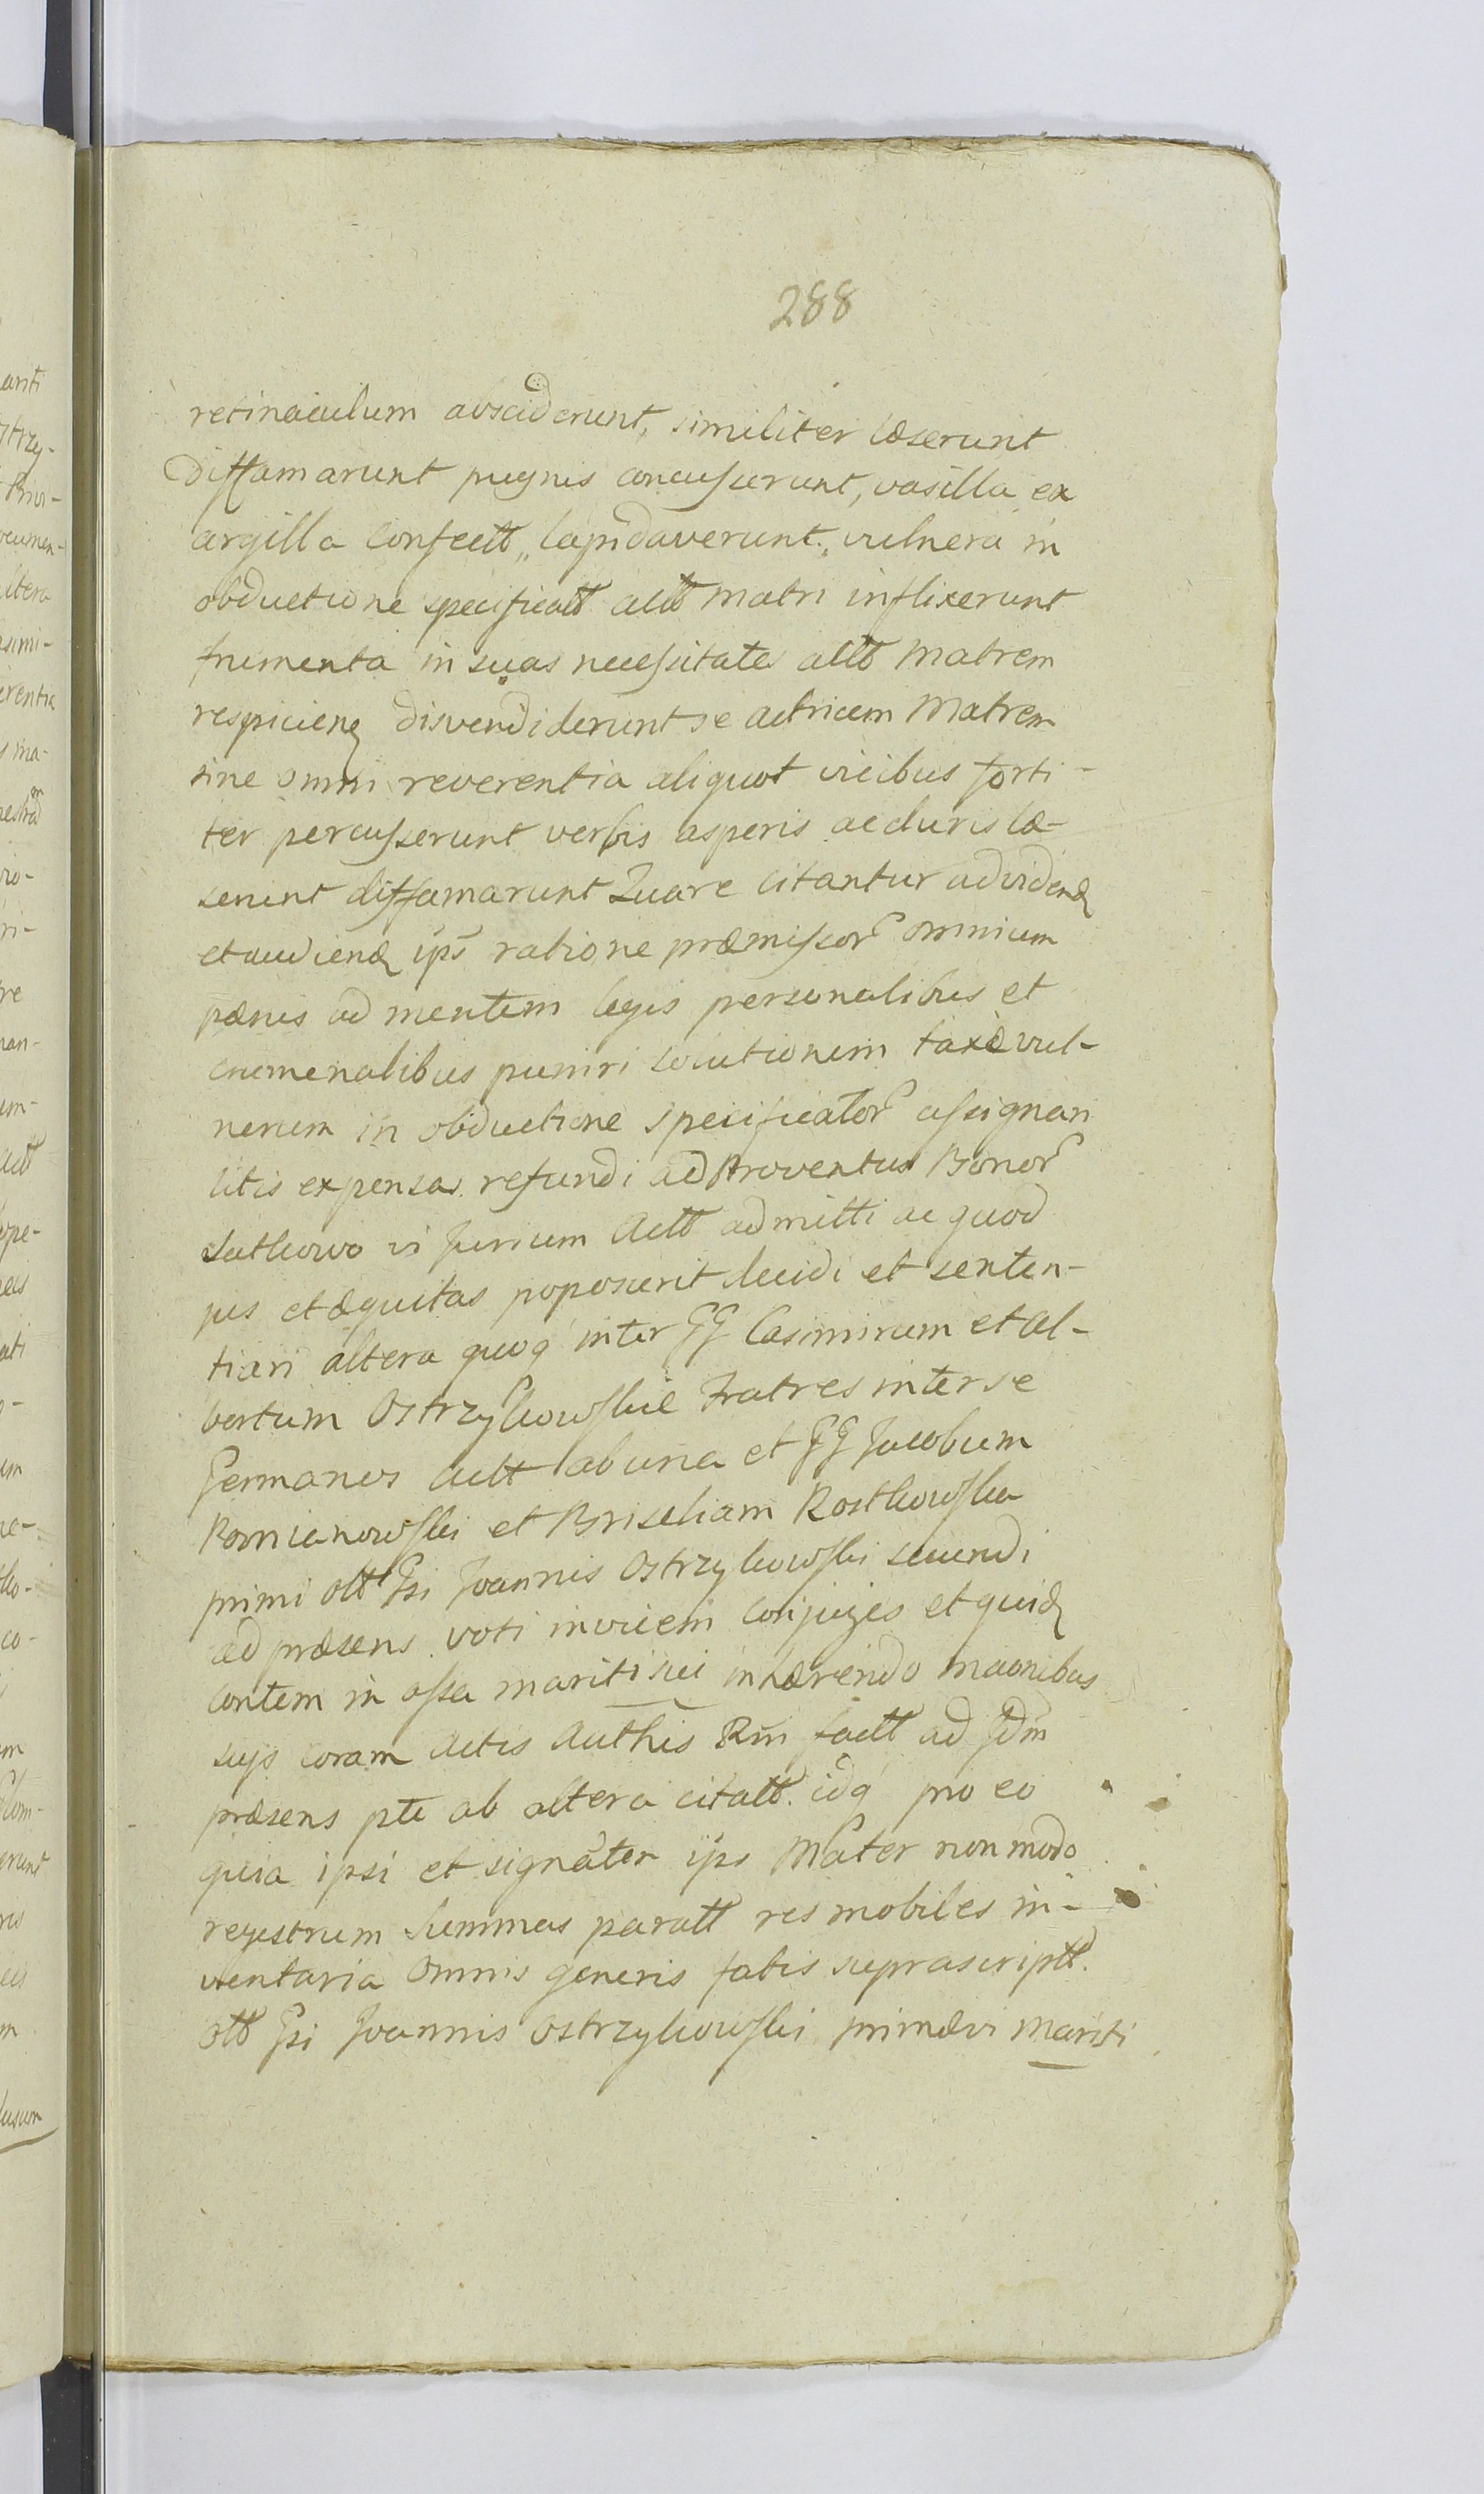 288
retinaculum absciderunt, similiter læserunt
diffamarunt pugnis concusserunt, vasilla ex
argilla confectt, lapidaverunt, vulnera in
obductione specificatt actt matri inflixerunt
frumenta in suas necessitates actt Matrem
respicienē disvendiderunt se actricem Matrem
sine omni reverentia aliquot vicibus forti-
ter percusserunt verbis asperis ac duris læ-
serunt diffamarunt Quare citantur ad videnđ
et audienđ ips ratione præmissor omnium
pænis ad mentem legis personalibus et
crumenalibus puniri solutionem taxæ vul-
nerum in obductione specificator assignari
litis expensas refundi ad Proventus Bonor
Sutkowo vi Jurium Actt admitti ac quod
jus et æquitas poposcerit decidi et senten-
tiari altera quoq inter GG Casimirum et Al-
bertum Ostrzykowskie Fratres inter se
Germanos actt ab una et GG Jacobum
Komianowski et Briseliam Rostkowska
primi oltt Gsi Joannis Ostrzykowski secundi
ad præsens voti invicem Conjuges et quid
contem in assa mariti sui inhærendo maonibus
sujs coram Actis Authis Rm factt ad Jdm
præsens pte ab altera citatt. idq pro eo
quia ipsi et signater ips Mater non modo
regestrum summas paratt res mobiles in-
ventaria omnis generis fatis suprascriptt.
oltt Gsi Joannis Ostrzykowski primævi mariti